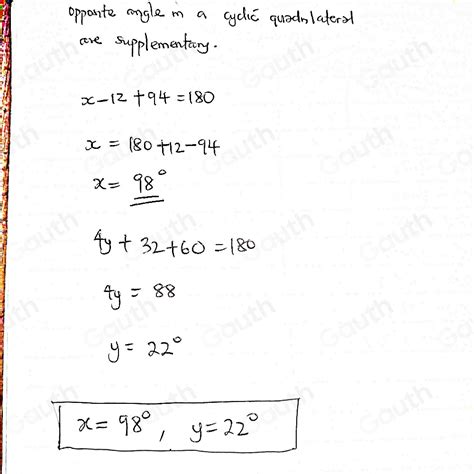 opposite angle in a cyclic quadrilateral
are supplementary.
x-12+94=180
x = 180+12-94
x= 98°
4y+ 32+60 =180
4y = 88
y= 22°
x= 98° , y=22°